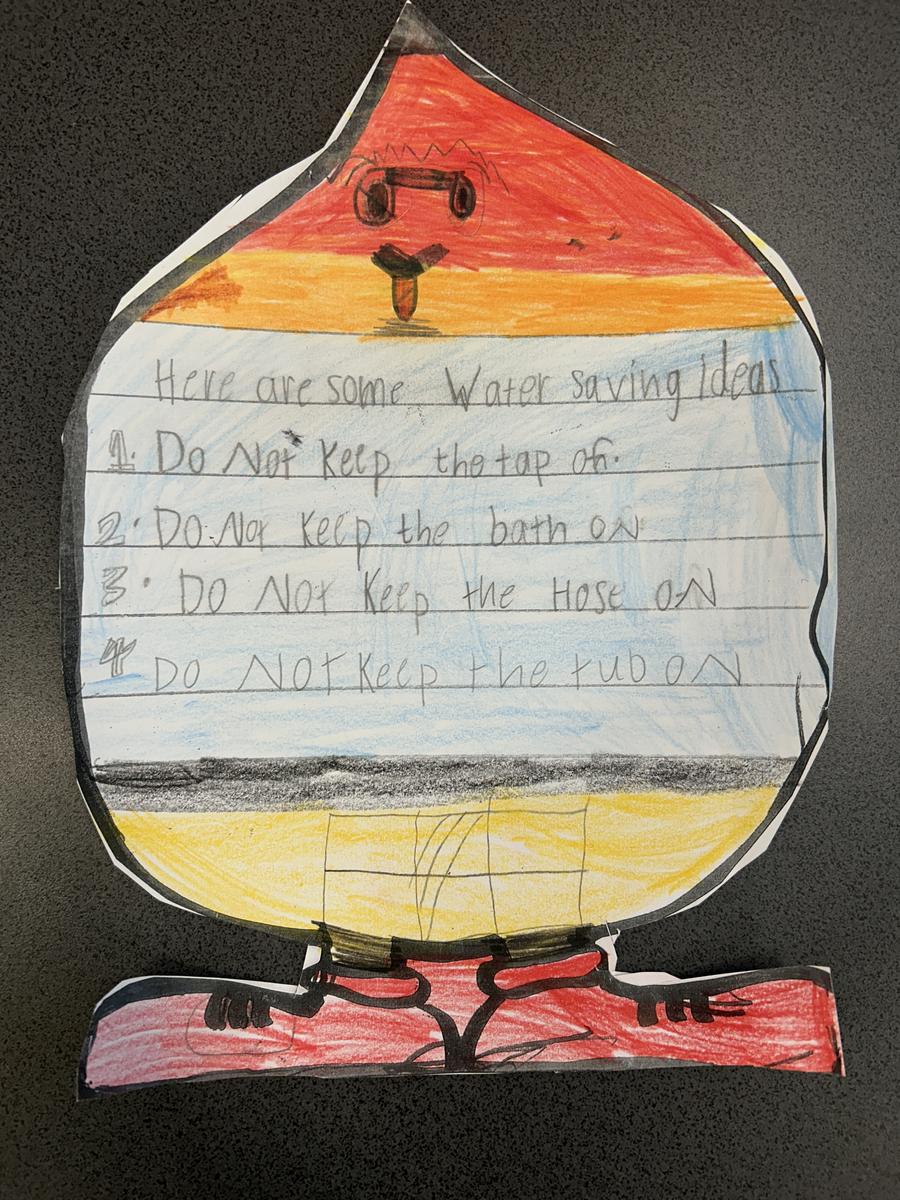 Here are some Water saving ideas
1. Do Not Keep the tap of.
2. Do Not Keep the bath oN
3. Do Not Keep the Hose oN
4 Do Not Keep the tub oN